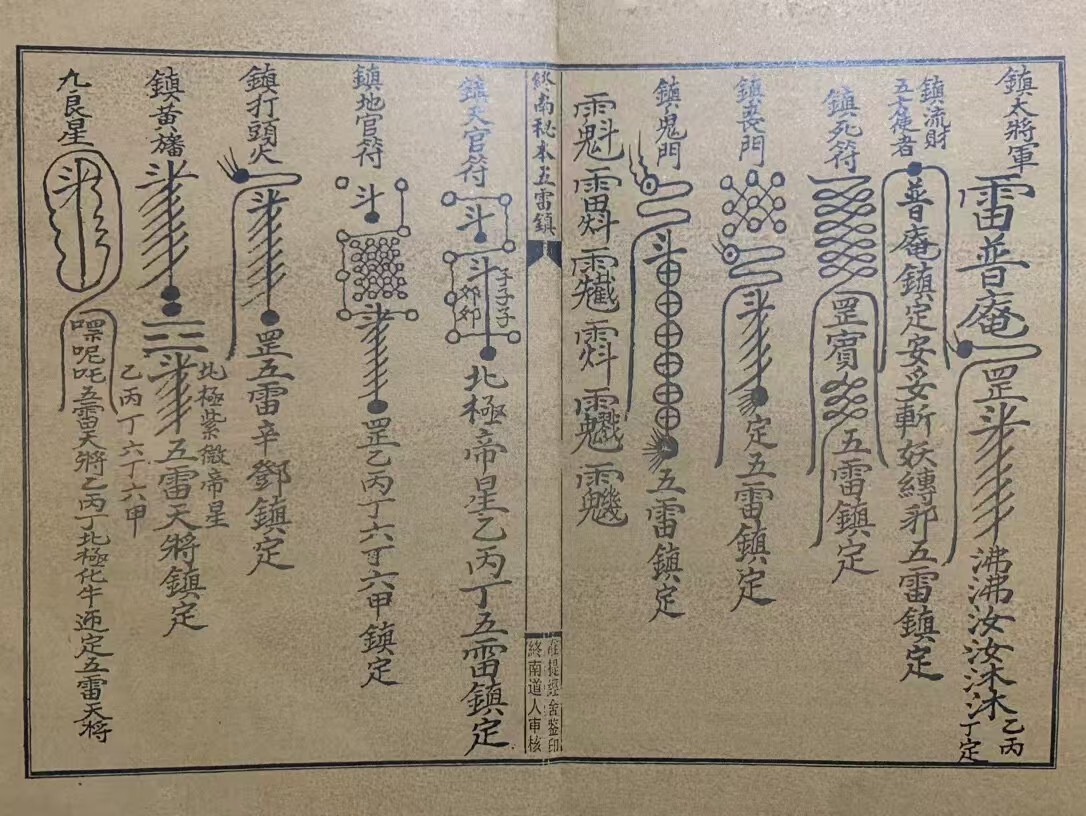 鎮太將軍
雷普庵罡斗沸沸汝汝沐沐
乙丙
丁定
鎮流財
五方使者
普庵鎮定安妥斬妖縛邪五雷鎮定
鎮死符
罡賓五雷鎮定
鎮喪門
斗定五雷鎮定
鎮鬼門
斗五雷鎮定
終南秘本五雷鎮
准提經舍鑒印
終南道人車核
鎮天官符
斗
斗
子子子
北極帝星乙丙丁五雷鎮定
鎮地官符
斗
斗罡乙丙丁六丁六甲鎮定
鎮打頭火
斗罡五雷辛鄧鎮定
鎮黃旛
斗
北極紫微帝星
斗五雷天將鎮定
乙丙丁六丁六甲
九良星
斗
嘌呢吒五雷天將乙丙丁北極化牛迊定五雷天將